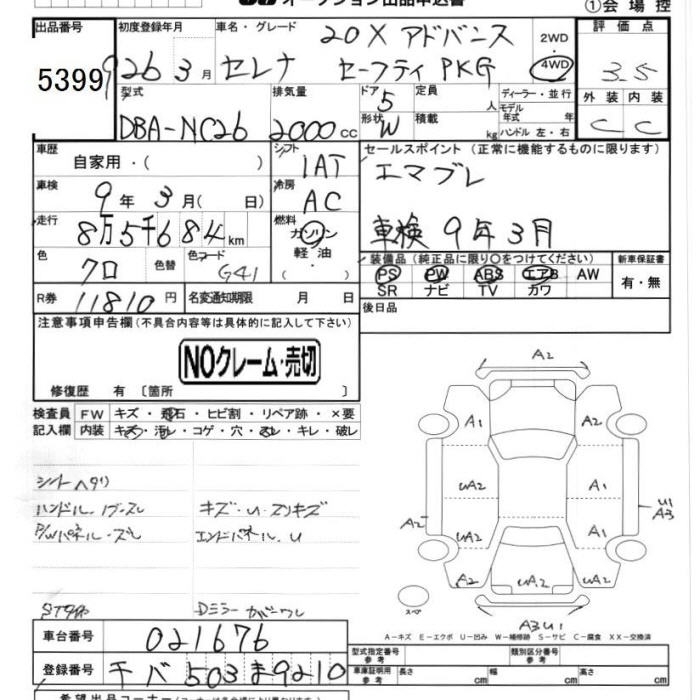 オークション出品申込書
①会場控
出品番号
5399
初度登録年月
26 3月
車名・グレード
セレナ
20X アドバンス
セーフティPKG
2WD
4WD
評価点
3.5
型式
DBA-NC26
排気量
2000cc
ドア 5
形状 W
定員 人
積載 kg
ディーラー・並行
モデル
年式 年
ハンドル 左・右
外装 内装
C C
車歴
自家用・( )
シフト
IAT
セールスポイント (正常に機能するものに限ります)
エマブレ
車検 9年3月
車検
9年3月( 日)
冷房
AC
走行
8万5千684km
燃料
ガソリン
軽油・
( )
色
クロ
色替
色コード
G41
装備品(純正品に限り○をつけてください)
PS PW ABS エアB AW
SR ナビ TV カワ
新車保証書
有・無
R券 11810円
名変通知期限 月 日
後日品
注意事項申告欄(不具合内容等は具体的に記入して下さい)
NOクレーム・売切
修復歴 有 〔箇所 〕
検査員
記入欄
FW キズ・飛石・ヒビ割・リペア跡・×要
内装 キズ・汚レ・コゲ・穴・スレ・キレ・破レ
シートヘタリ
ハンドル・ノブスレ
P/Wパネル・ズレ
キズ・U・スリキズ
エンドパネル・U
Dミラーカバーワレ
A2
A1 A2
UA2 A1
A2 U1
A3
UA2 A1
A2 UA2 UA2
スペ
A3U1
A-キズ E-エクボ U-凹み W-補修跡 S-サビ C-腐食 XX-交換済
車台番号 021676
登録番号 チバ 503 ま 9210
型式指定番号
参考
類別区分番号
参考
車庫証明用
参考
長さ cm
幅 cm
高さ cm
希望出品コーナー